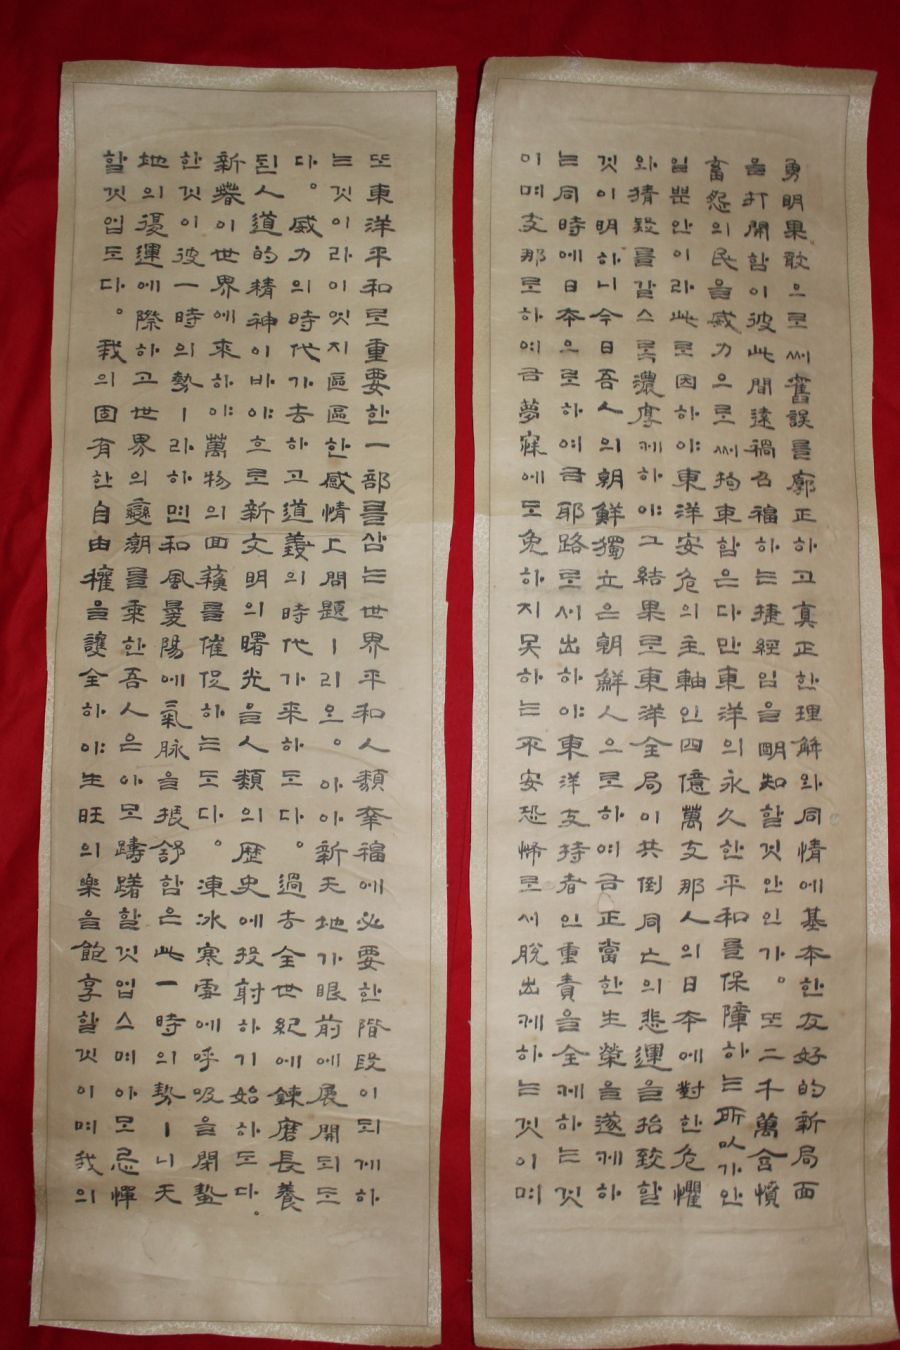 勇明果敢으로써舊誤를廓正하고真正한理解와同情에基本한友好的新局面
을打開함이彼此間遠禍召福하는捷經임을明知할것안인가。또二千萬含憤
畜怨의民을威力으로써拘束함은다만東洋의永久한平和를保障하는所以가안
입뿐안이라此로因하야東洋安危의主軸인四億萬支那人의日本에對한危懼
와猜疑를갈스록濃厚케하야그結果로東洋全局이共倒同亡의悲運을招致할
것이明하니今日吾人의朝鮮獨立은朝鮮人으로하여금正當한生榮을遂케하
는同時에日本으로하여금耶路로서出하야東洋支持者인重責을全케하는것
이며支那로하여금夢寐에도免하지못하는不安恐怖로서脫出케하는것이며
또東洋平和로重要한一部를삼는世界平和人類幸福에必要한階段이되게하
는것이라이엇지區區한感情上問題ㅣ리오。아아新天地가眼前에展開되도
다。威力의時代가去하고道義의時代가來하도다。過去全世紀에鍊磨長養
된人道的精神이바야흐로新文明의曙光을人類의歷史에投射하기始하도다。
新春이世界에來하야萬物의回蘇를催促하는도다。凍氷寒雪에呼吸을閉蟄
한것이彼一時의勢ㅣ라하면和風暖陽에氣脉을振舒함은此一時의勢ㅣ니天
地의復運에際하고世界의變潮를乘한吾人은아모躊躇할것업스며아모忌憚
할것입도다。我의固有한自由權을護全하야生旺의樂을飽享할것이며我의